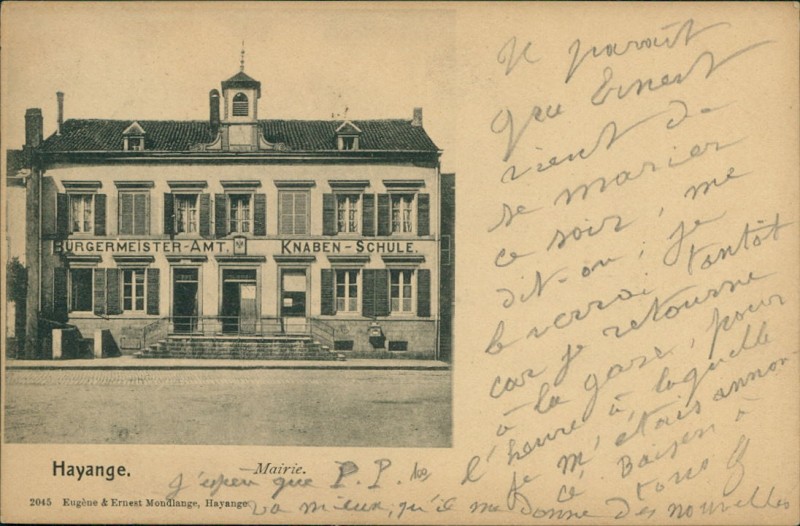 BÜRGERMEISTER-AMT. KNABEN-SCHULE.
Il parait
que Ernest
vient de
se marier
ce soir, me
dit-on, je
le verrai tantôt
car je retourne
à la gare, pour
l'heure à laquelle
je m'étais annon-
cé. Baisers à
tous
J'espère que P. P.
va mieux, qu'il me donne des nouvelles
Hayange.
Mairie.
2045 Eugène & Ernest Mondlange, Hayange.